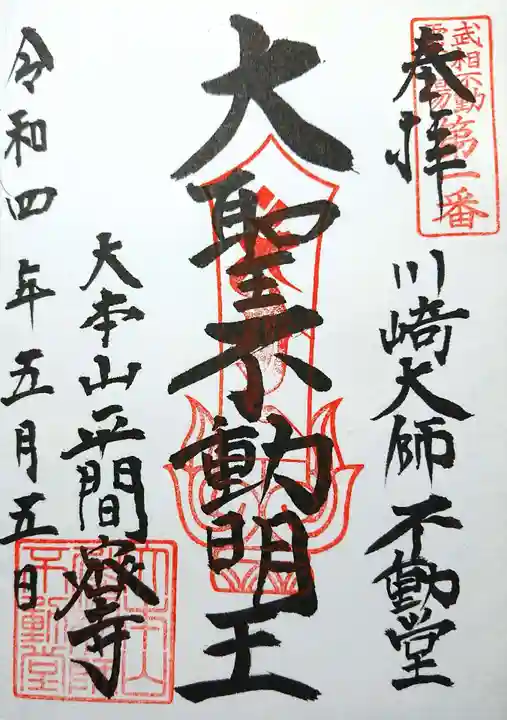 武相不動
霊場第一番
奉拝
川崎大師不動堂
大聖不動明王
大本山平間寺
令和四年五月五日
不動堂